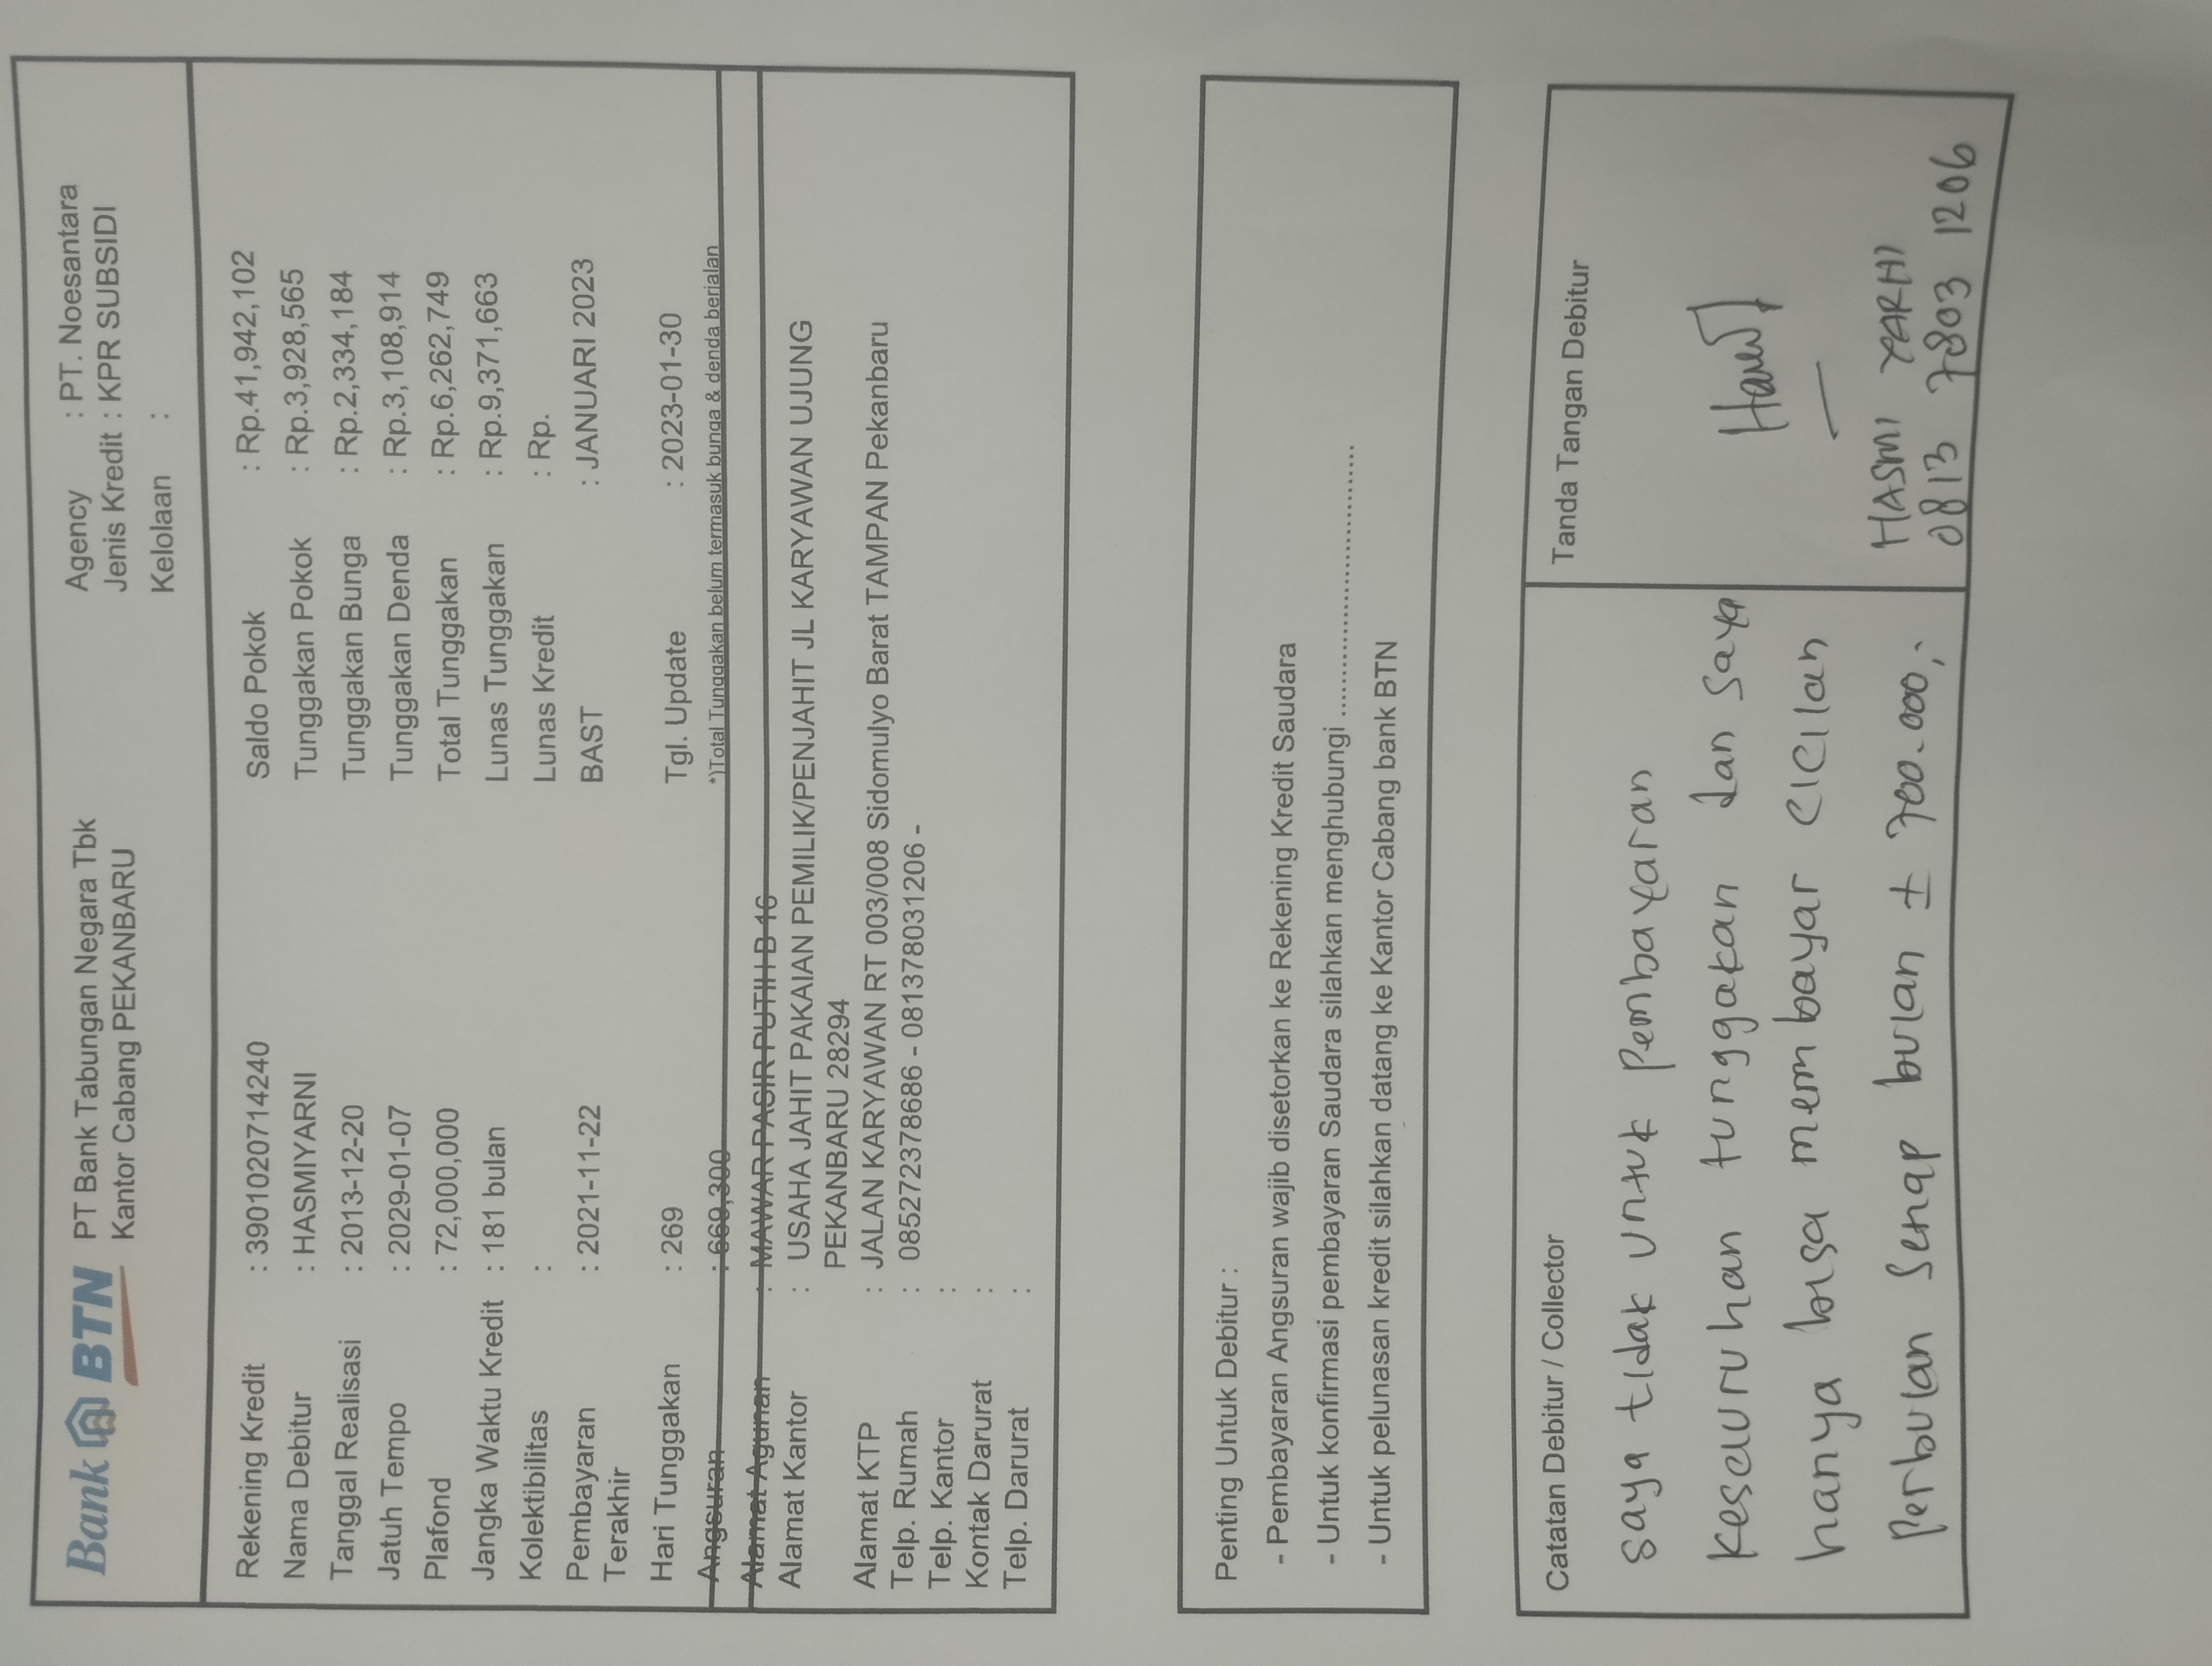 Bank BTN
PT Bank Tabungan Negara Tbk
Kantor Cabang PEKANBARU
Agency : PT. Noesantara
Jenis Kredit : KPR SUBSIDI
Kelolaan :
Rekening Kredit : 3901020714240
Nama Debitur : HASMIYARNI
Tanggal Realisasi : 2013-12-20
Jatuh Tempo : 2029-01-07
Plafond : 72,000,000
Jangka Waktu Kredit : 181 bulan
Kolektibilitas :
Pembayaran Terakhir : 2021-11-22
Hari Tunggakan : 269
Angsuran : 669,300
Saldo Pokok : Rp.41,942,102
Tunggakan Pokok : Rp.3,928,565
Tunggakan Bunga : Rp.2,334,184
Tunggakan Denda : Rp.3,108,914
Total Tunggakan : Rp.6,262,749
Lunas Tunggakan : Rp.9,371,663
Lunas Kredit : Rp.
BAST : JANUARI 2023
Tgl. Update : 2023-01-30
*)Total Tunggakan belum termasuk bunga & denda berjalan
Alamat Agunan : MAWAR PASIR PUTIH B 16
Alamat Kantor : USAHA JAHIT PAKAIAN PEMILIK/PENJAHIT JL KARYAWAN UJUNG
PEKANBARU 28294
Alamat KTP : JALAN KARYAWAN RT 003/008 Sidomulyo Barat TAMPAN Pekanbaru
Telp. Rumah : 085272378686 - 081378031206 -
Telp. Kantor :
Kontak Darurat :
Telp. Darurat :
Penting Untuk Debitur :
- Pembayaran Angsuran wajib disetorkan ke Rekening Kredit Saudara
- Untuk konfirmasi pembayaran Saudara silahkan menghubungi ........................................
- Untuk pelunasan kredit silahkan datang ke Kantor Cabang bank BTN
Catatan Debitur / Collector
saya tidak untuk Pembayaran
keseuruhan tunggakan dan saya
hanya bisa membayar cicilan
Perbulan Setiap bulan ± 700.000,-
Tanda Tangan Debitur
HASMI YARHI
0813 7803 1206